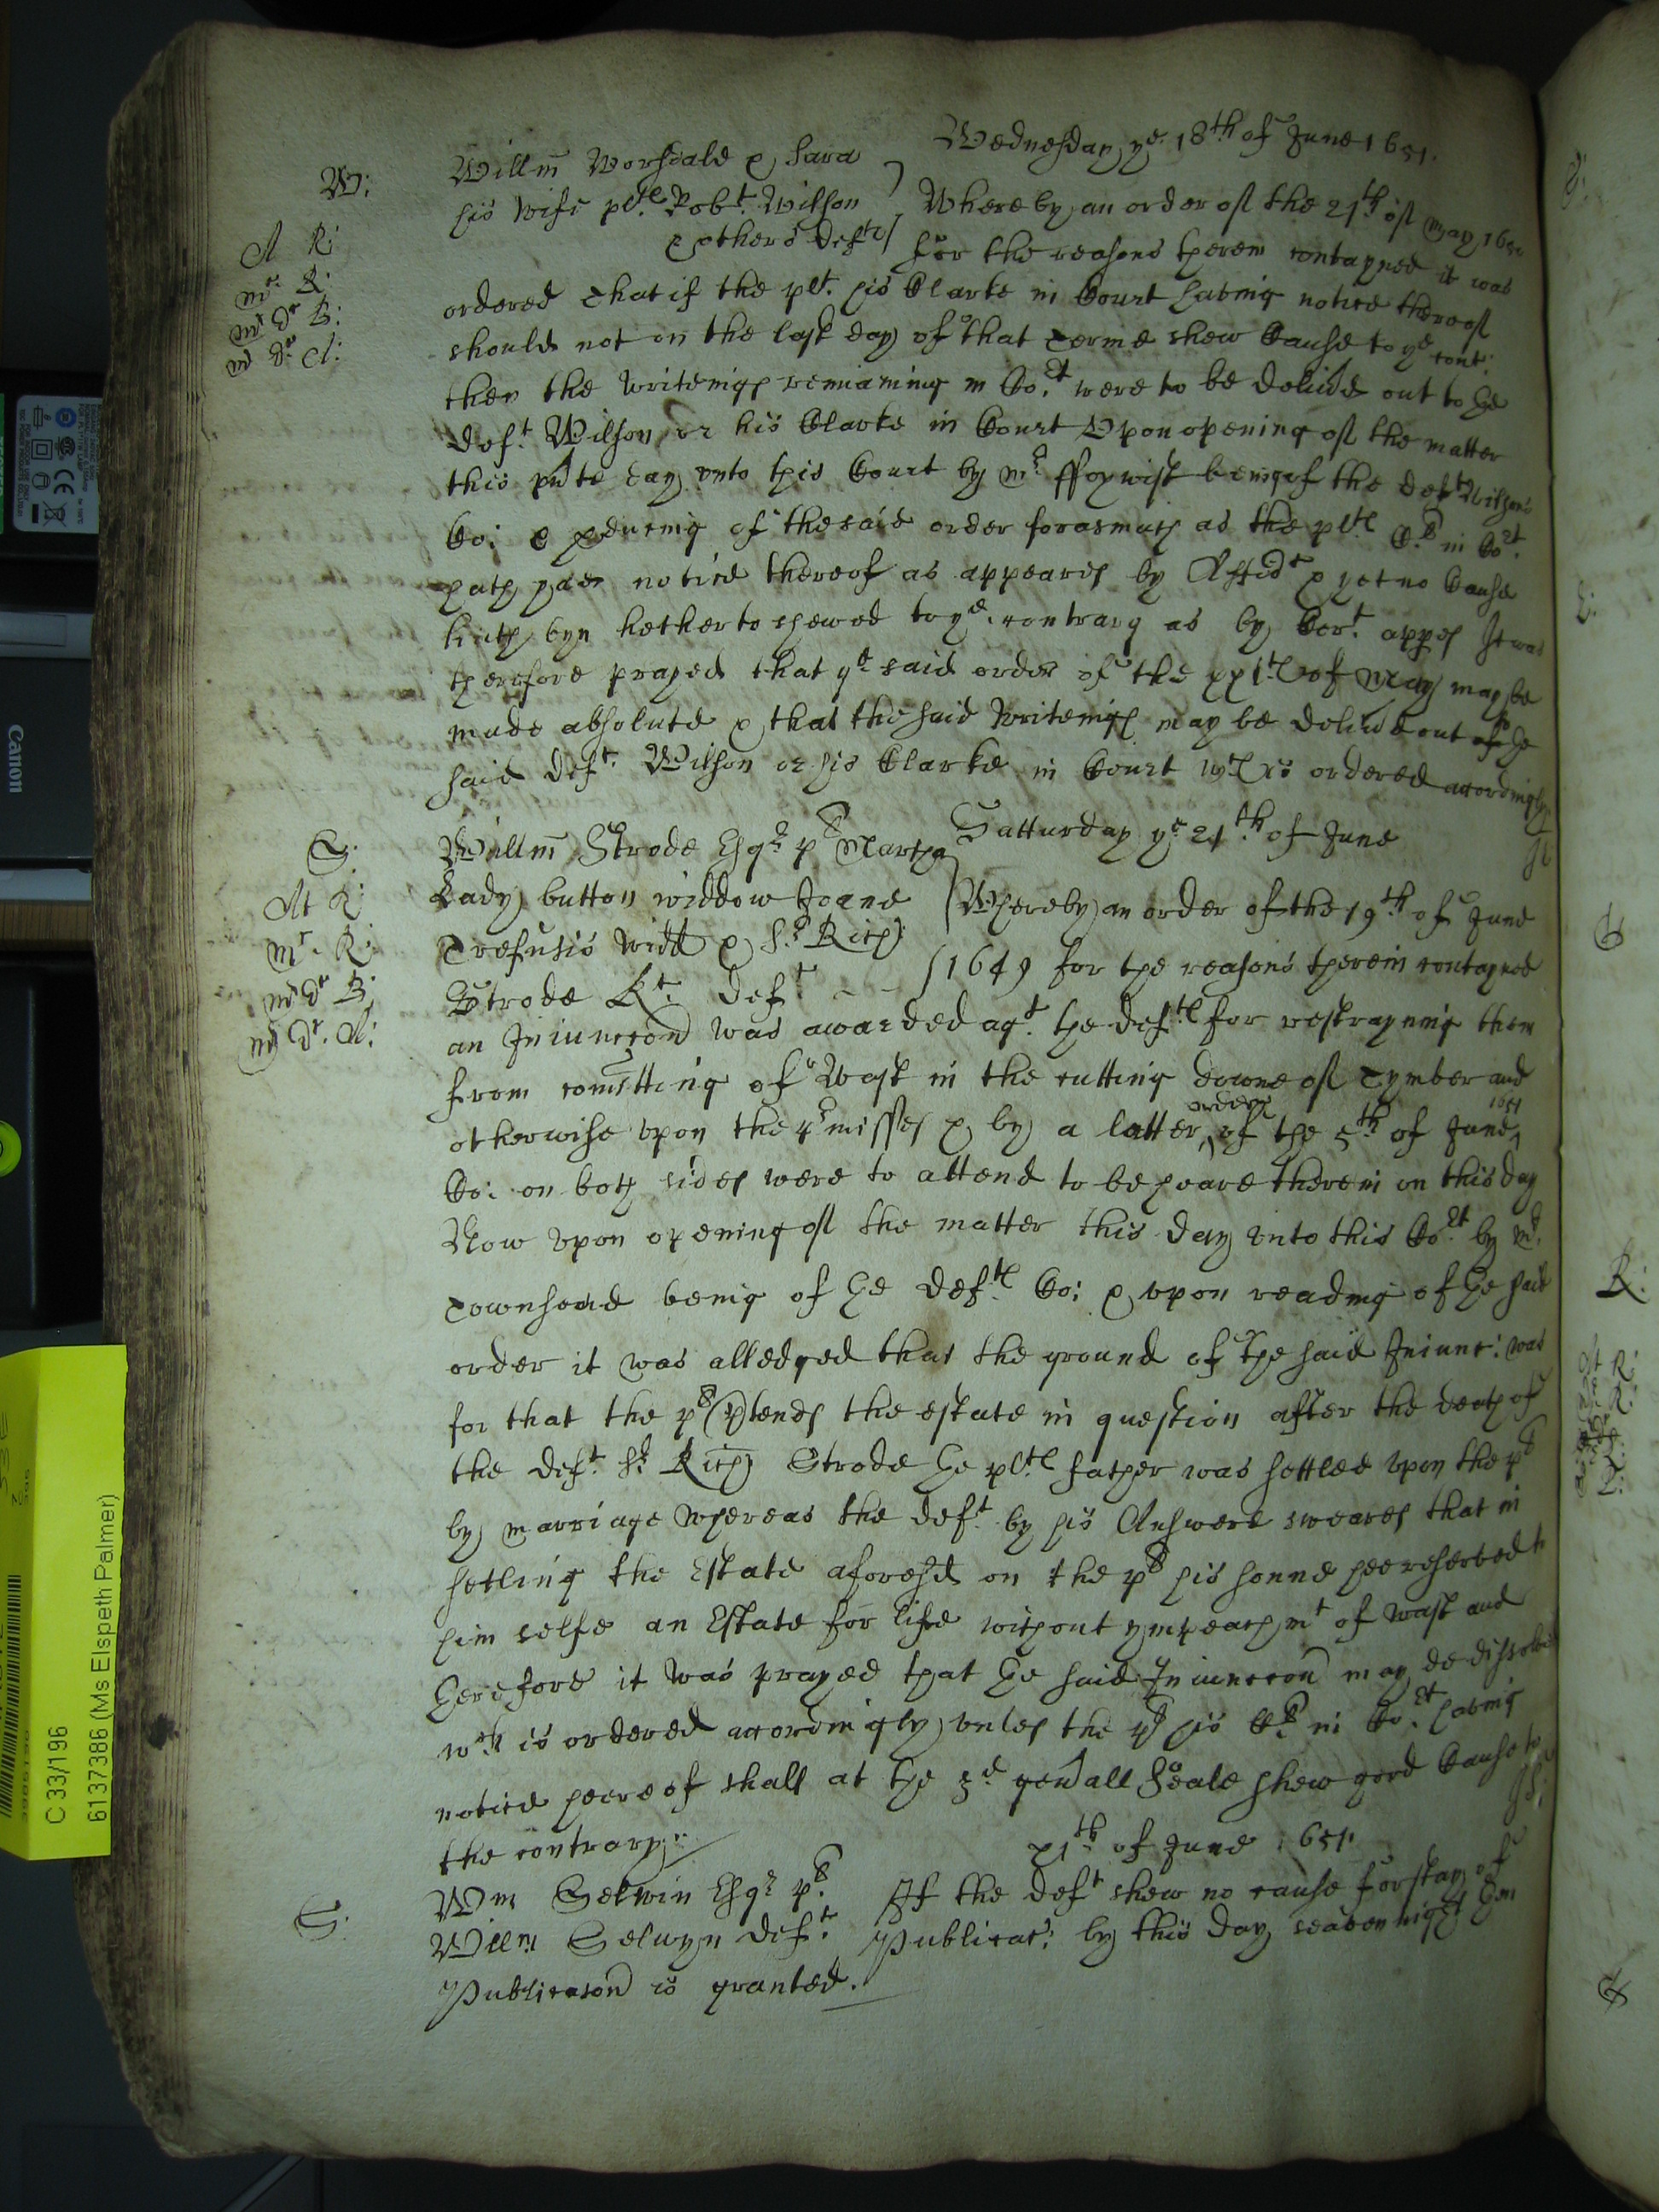 Wednesday ye 18th of June 1651.
W:
Willm Worsdale & Sara
his wife plts Robt. Wilson
& others Defts
Whereby an order of the 21th of May 1651
for the reasons therein contayned it was
A R:
Mr. R:
Mr Dr B:
Mr Dr A:
ordered That if the plt. his Clarke in Court having notice thereof
should not on the last day of that Terme shew Cause to ye cont:
then the writeings remiaining in Cort were to be delivd out to the
Deft Wilson or his Clarke in Court Upon opening of the matter
this pnte day unto this Court by Mr ffoxwist being of the Deft Wilsons
Co: & pduceing of the said order forasmuch as the plts C: in Cort.
hath had notice thereof as appeares by Affidt & yet no Cause
hath byn hetherto shewed to ye contrary as by Cert. appes It was
therefore prayed that ye said order of the xxith of May may be
made absolute & that the said Writeings may be delivd out to the
said Deft. Wilson or his Clarke in Court wch is ordered accordingly
Satturday ye 21th of June
S:
A R:
Mr. R:
Mr Dr B:
Mr Dr. A:
Willm Strode Esqr pt Martha
Lady button widdow Joane
Trefusis widd & Sr Rich:
Strode Kt. Deft
Whereby an order of the 19th of June
1649 for the reasons therein contayned
an Iniunccon was awarded agt. the Defts for restrayning them
from comitting of Wast in the cutting downe of Tymber and
otherwise upon the pmisses & by a latter order of the 5th of June 1651
Co: on both sides were to attend to be heard therein on this day
Now upon opening of the matter this day unto this Cort by Mr.
Townsend being of the Defts Co: & upon reading of the said
order it was alledged that the ground of the said Iniunc: was
for that the pt ptends the estate in question after the death of
the Deft. Sr Rich: Strode the plts father was settled upon the pt
by marriage whereas the Deft by his Answere sweares that in
setling the Estate aforesd on the pt his sonne hee reserved to
him selfe an Estate for life without ympeachmt of wast and
therefore it was prayed that the said Iniunccon may be dissolved
wch is ordered accordingly unles the pt his C: in Cort having
notice hereof shall at the 3d genall Seale shew good Cause to
the contrary
21th of June 1651.
S:
Wm Selwin Esqr pt.
Willm Selwyn Deft.
If the Deft shew no cause for stay of
Publicac: by this day seaven night then
Publicacon is granted.
Canon
C 33/196
6137386 (Ms Elspeth Palmer)